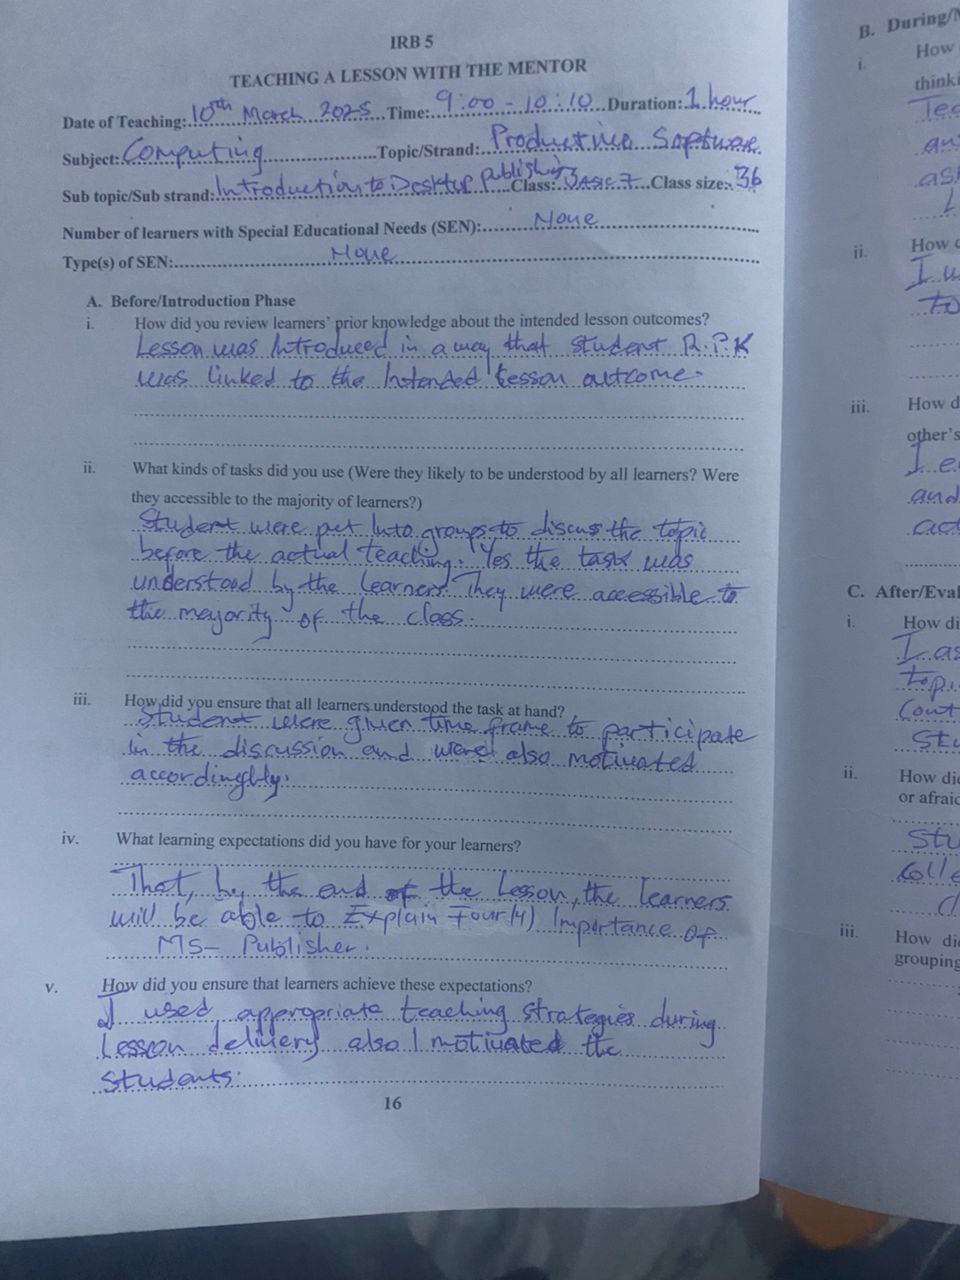 IRB 5
TEACHING A LESSON WITH THE MENTOR
Date of Teaching: 10th March 2025 Time: 9:00 - 10:10 Duration: 1 hour
Subject: Computing Topic/Strand: Software
Sub topic/Sub strand: Introduction to Desktop publishing Class: Basic 7 Class size: 36
Number of learners with Special Educational Needs (SEN): None
Type(s) of SEN: None
A. Before/Introduction Phase
i. How did you review learners' prior knowledge about the intended lesson outcomes?
Lesson was Introduced in a way that student R.P.K
was linked to the Intended lesson outcome.
ii. What kinds of tasks did you use (Were they likely to be understood by all learners? Were
they accessible to the majority of learners?)
Student were put Into groups to discuss the topic
before the actual teaching. Yes the task was
understood by the learners They were accessible to
the mayority of the class.
iii. How did you ensure that all learners understood the task at hand?
Student were given time frame to participate
in the discussion and were also motivated
accordinghly.
iv. What learning expectations did you have for your learners?
That, by the end of the Lesson, the learners
will be able to Explain Four (4) Importance of
MS- Publisher.
v. How did you ensure that learners achieve these expectations?
I used appropriate teaching strategies during
Lesson delivery also I motivated the
Students.
16
B. During/
i. How
ii. How
I
to
iii. How d
other's
I
and
act
C. After/Eval
i. How di
I as
ii. How did
or afraid
iii. How did
grouping